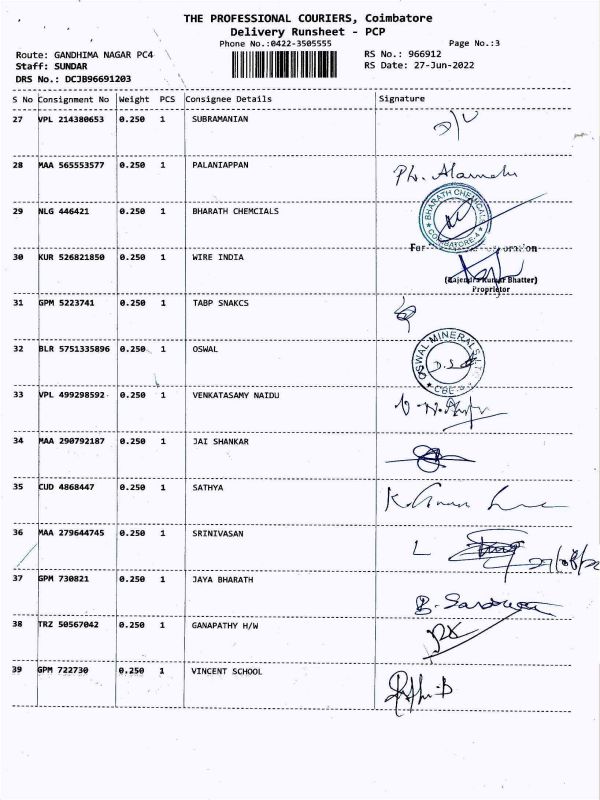 THE PROFESSIONAL COURIERS, Coimbatore
Delivery Runsheet - PCP
Phone No.:0422-3505555
Page No.:3
Route: GANDHIMA NAGAR PC4
RS No.: 966912
Staff: SUNDAR
RS Date: 27-Jun-2022
DRS No.: DCJB96691203
S No Consignment No Weight PCS Consignee Details Signature
27 VPL 214380653 0.250 1 SUBRAMANIAN
28 MAA 565553577 0.250 1 PALANIAPPAN
29 NLG 446421 0.250 1 BHARATH CHEMCIALS
BHARATH CHEMICALS
COIMBATORE-4
For
30 KUR 526821850 0.250 1 WIRE INDIA
(Rajendra Kumar Bhatter)
Proprietor
31 GPM 5223741 0.250 1 TABP SNAKCS
32 BLR 5751335896 0.250 1 OSWAL
OSWAL MINERALS
33 VPL 499298592 0.250 1 VENKATASAMY NAIDU
34 MAA 290792187 0.250 1 JAI SHANKAR
35 CUD 4868447 0.250 1 SATHYA
36 MAA 279644745 0.250 1 SRINIVASAN
37 GPM 730821 0.250 1 JAYA BHARATH
38 TRZ 50567042 0.250 1 GANAPATHY H/W
39 GPM 722730 0.250 1 VINCENT SCHOOL